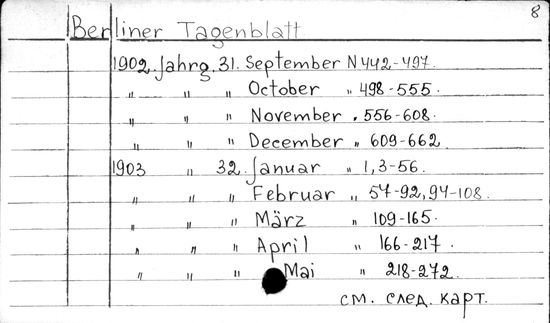 8
Berliner Tagenblatt
1902. Jahrg. 31. September N 442-497.
" " " October " 498-555.
" " " November " 556-608.
" " " December " 609-662
1903 " 32. Januar " 1,3-56.
" " " Februar " 57-92, 94-108.
" " " März " 109-165.
" " " April " 166-217.
" " " Mai " 218-272.
см. след. карт.